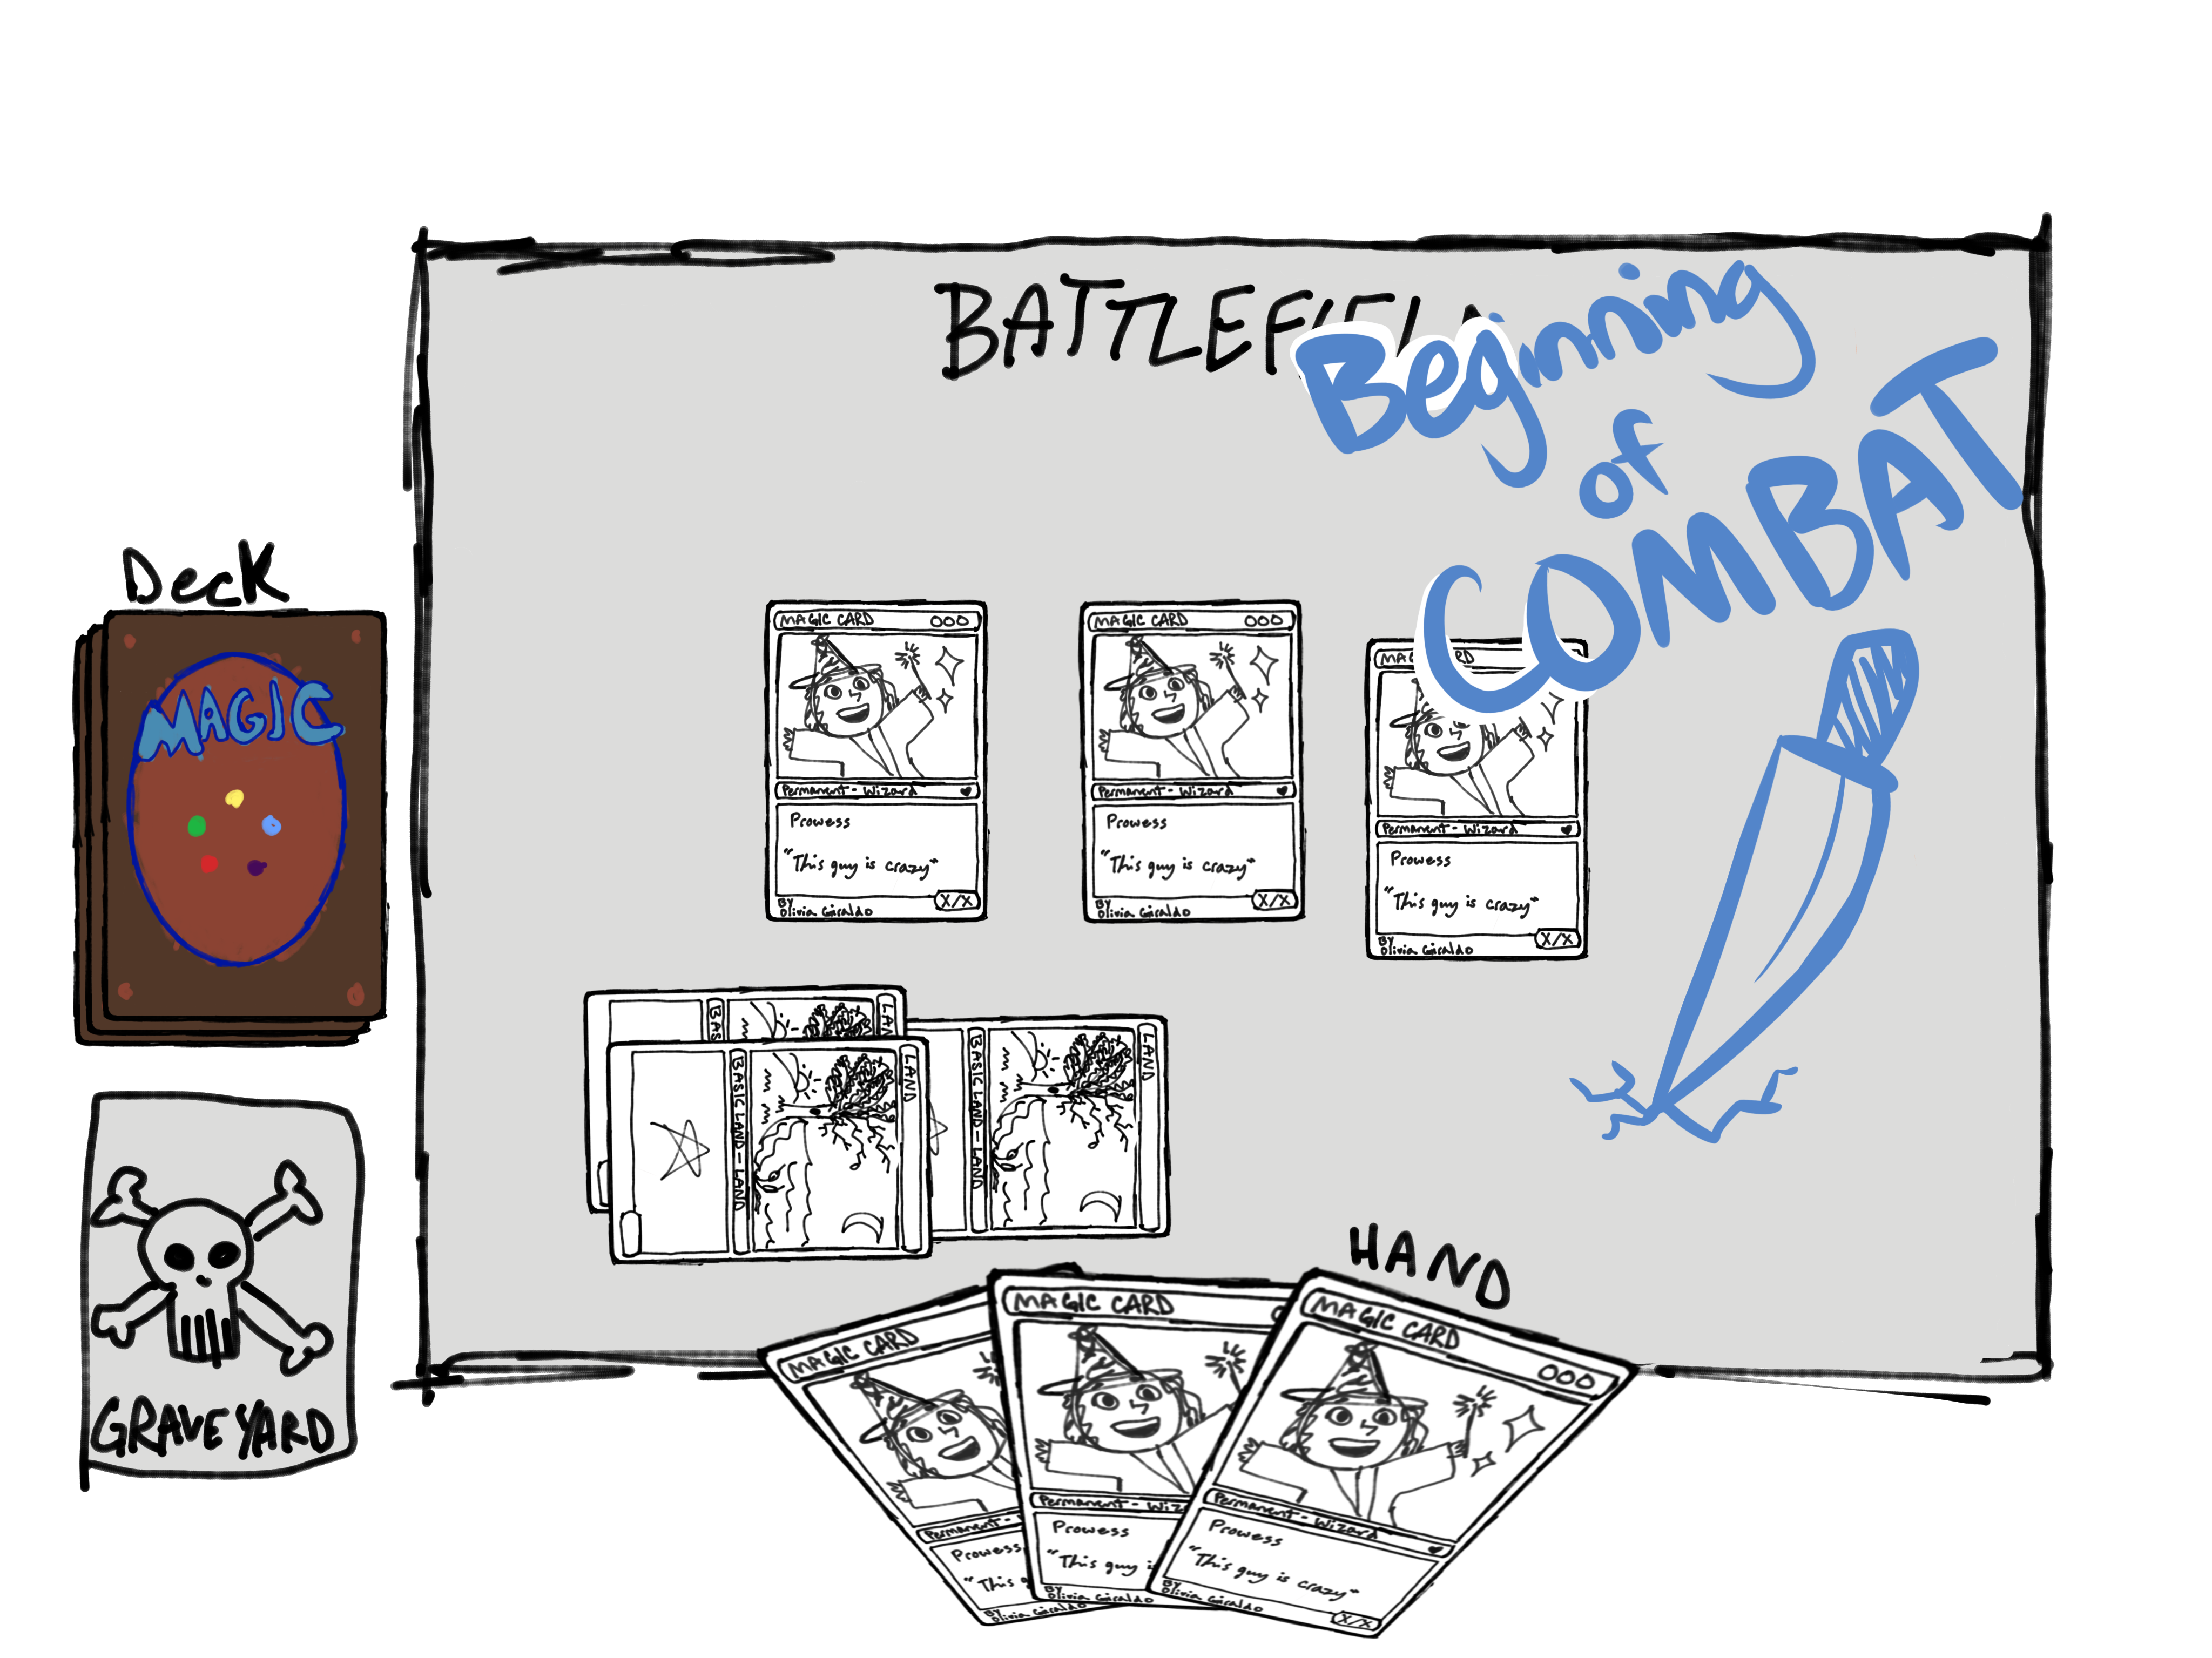 BATTLEFIELD
Beginning
of
COMBAT
Deck
MAGIC
GRAVEYARD
MAGIC CARD 000
Permanent - Wizard
Prowess
"This guy is crazy"
X/X
BY
Olivia Giraldo
MAGIC CARD 000
Permanent - Wizard
Prowess
"This guy is crazy"
X/X
BY
Olivia Giraldo
Permanent - Wizard
Prowess
"This guy is crazy"
X/X
BY
Olivia Giraldo
LAND
BASIC LAND - LAND
LAND
BASIC LAND - LAND
HAND
MAGIC CARD
Permanent -
Prowess
"This
BY
Olivia Giraldo
MAGIC CARD
Permanent - Wiz
Prowess
"This guy
BY
Olivia Giraldo
MAGIC CARD 000
Permanent - Wizard
Prowess
"This guy is crazy"
BY
Olivia Giraldo
X/X